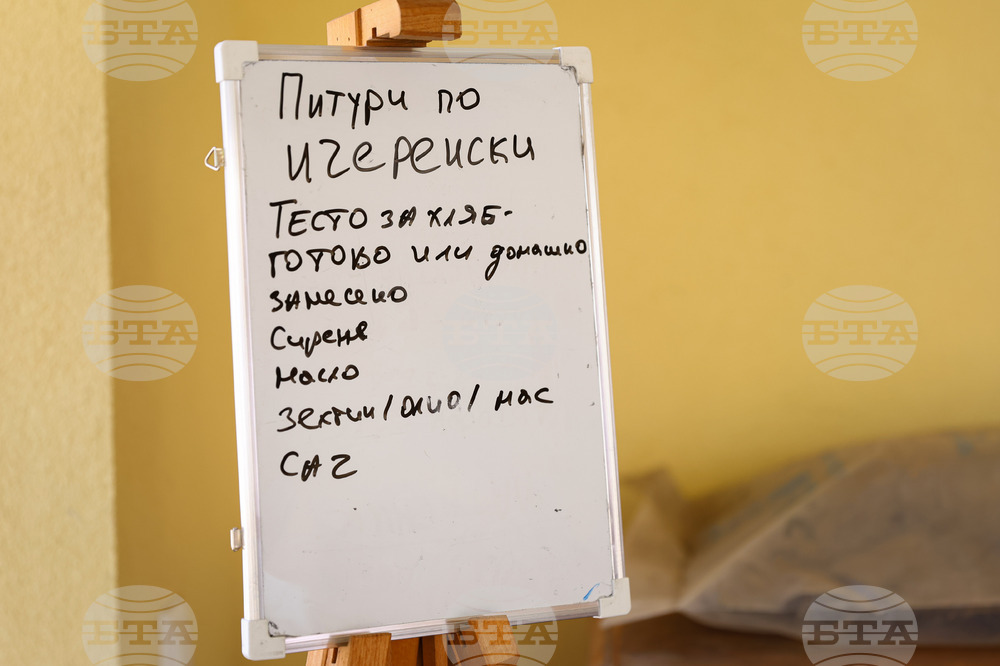 Питури по
игеренски
Тесто за хляб-
готово или домашно
замесено
Сирене
масло
зехтин/олио/ мас
САЧ
БТА
БТА
БТА
БТА
БТА
БТА
БТА
БТА
БТА